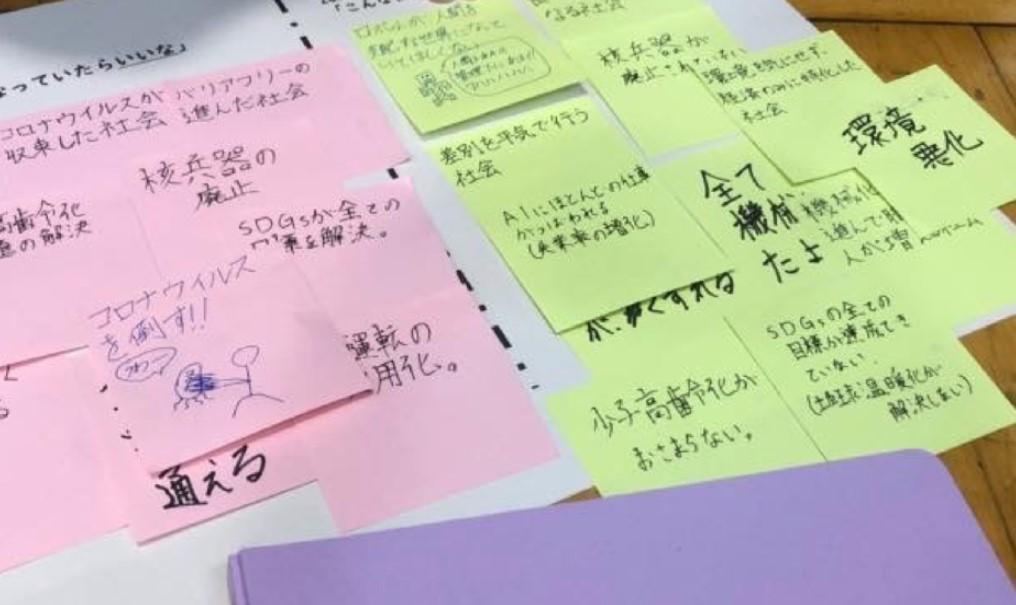 なっていたらいいな」
「こんな
コロナウイルスが
収束した社会
バリアフリーの
進んだ社会
核兵器の
廃止
の解決
SDGsが全ての
を解決。
コロナウイルス
を倒す!!
運転の
用化。
通える
ロボットが人間を
支配する世界になって
いてほしくない
なる社会
核兵器が
廃止されていない
環境を気にせず、
経済のみに特化した
社会
環境
悪化
差別を平気で行う
社会
AIにほとんどの仕事
がうばわれる
(失業率の増化)
全て
機械
たよ
機械化
進んで
人が増
少子高齢化が
おさまらない。
SDGsの全ての
目標が達成でき
ていない
(地球温暖化が
解決しない)